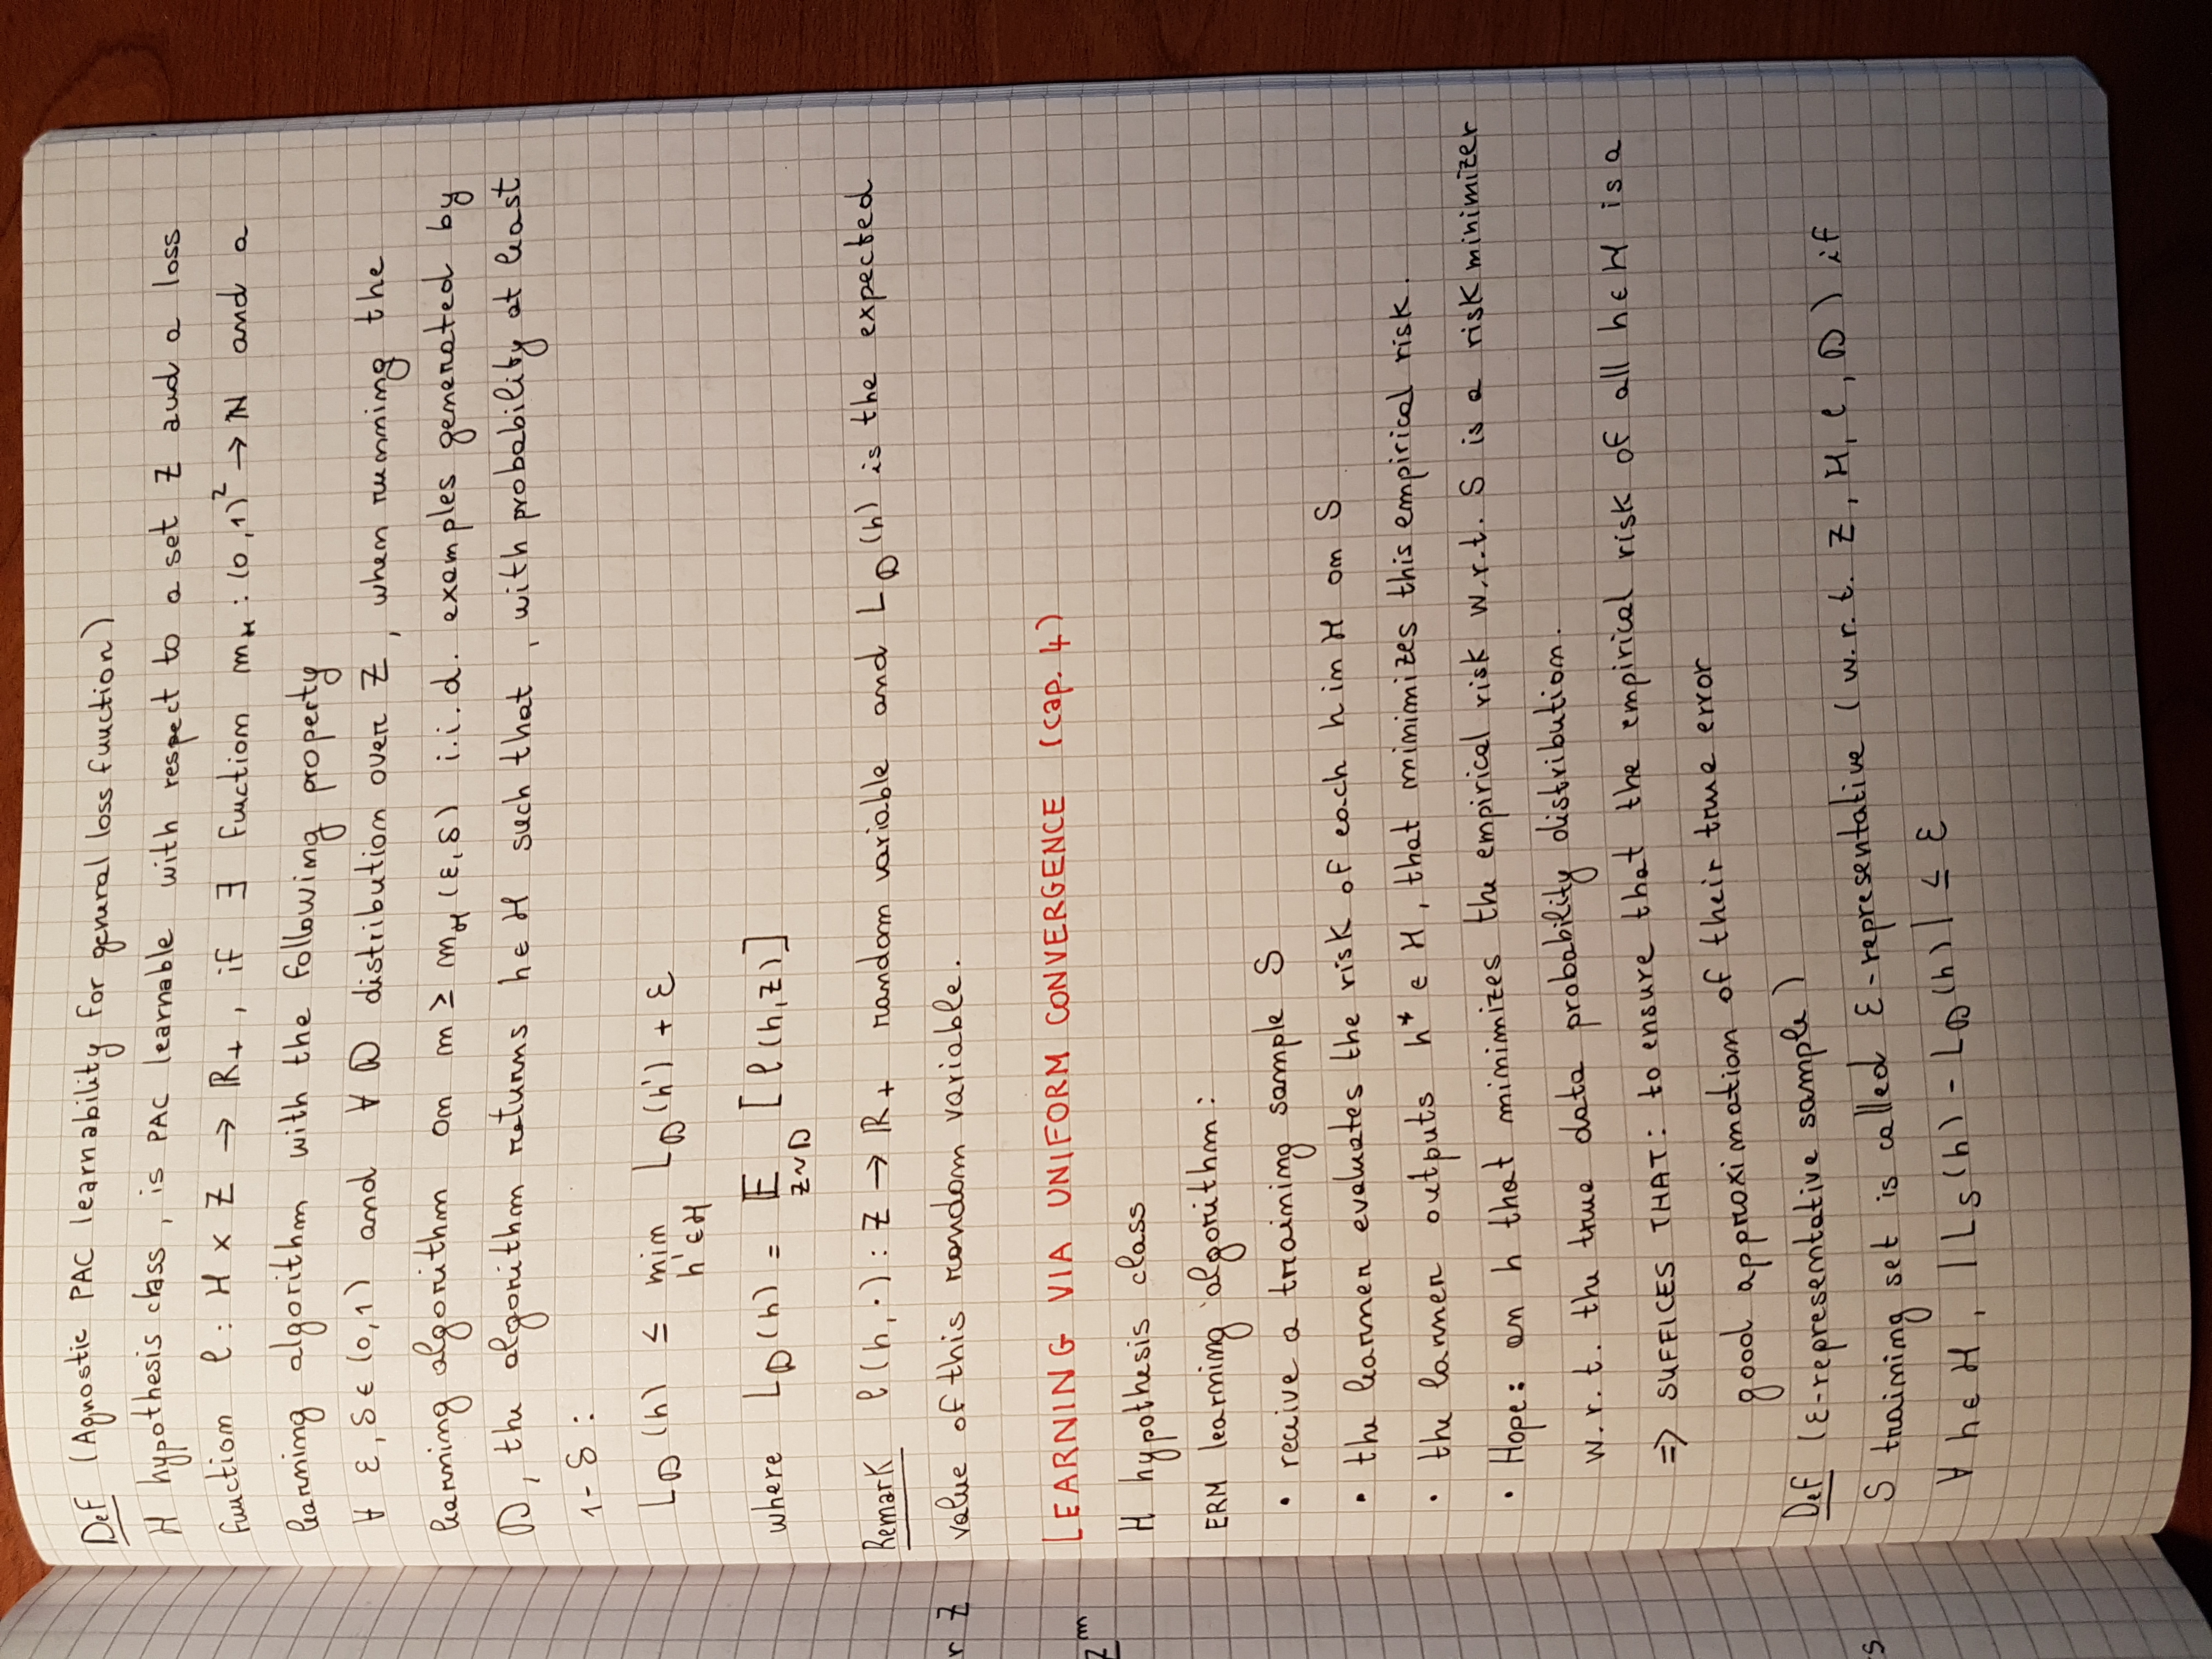 Def (Agnostic PAC learnability for general loss function)
H hypothesis class, is PAC learnable with respect to a set Z and a loss
function ℓ : H × Z → ℝ₊, if ∃ function m_H : (0,1)² → ℕ and a
learning algorithm with the following property
∀ ε, δ ∈ (0,1) and ∀ D distribution over Z, when running the
learning algorithm on m ≥ m_H (ε, δ) i.i.d. examples generated by
D, the algorithm returns h ∈ H such that, with probability at least
1 - δ :
L_D (h) ≤ min L_D (h') + ε
h' ∈ H
where L_D (h) = 𝔼 [ℓ(h,z)]
z ~ D
Remark ℓ(h, ·) : Z → ℝ₊ random variable and L_D (h) is the expected
r Z
value of this random variable.
LEARNING VIA UNIFORM CONVERGENCE (cap. 4)
Z^m
H hypothesis class
ERM learning algorithm:
• receive a training sample S
• the learner evaluates the risk of each h in H on S
• the larner outputs h* ∈ H, that minimizes this empirical risk.
• Hope: an h that minimizes the empirical risk w.r.t. S is a risk minimizer
w.r.t. the true data probability distribution.
⇒ SUFFICES THAT: to ensure that the empirical risk of all h ∈ H is a
good approximation of their true error
Def (ε-representative sample)
s
S training set is called ε-representative (w.r.t. Z, H, ℓ, D) if
∀ h ∈ H, |L_S (h) - L_D (h)| ≤ ε